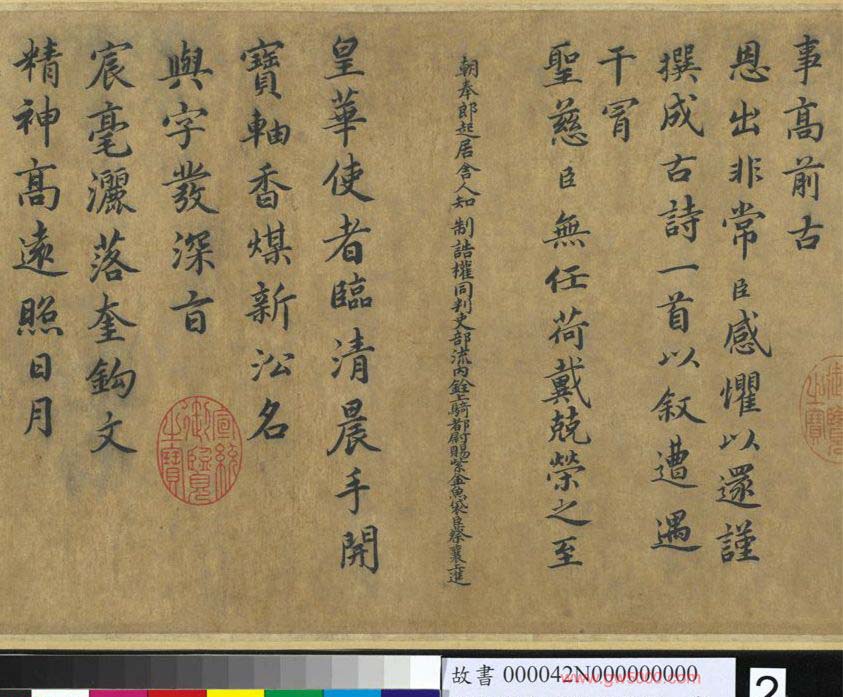 事高前古
恩出非常臣感懼以還謹
撰成古詩一首以叙遭遇
干冐
聖慈臣無任荷戴兢榮之至
朝奉郎起居舍人知 制誥權同判吏部流內銓上騎都尉賜紫金魚袋臣蔡襄上進
皇華使者臨清晨手開
寶軸香煤新沿名
與字發深㫖
宸毫灑落奎鈎文
精神髙遠照日月
宣統御覽之寶
故書 000042N000000000
www.gw5000.com
2